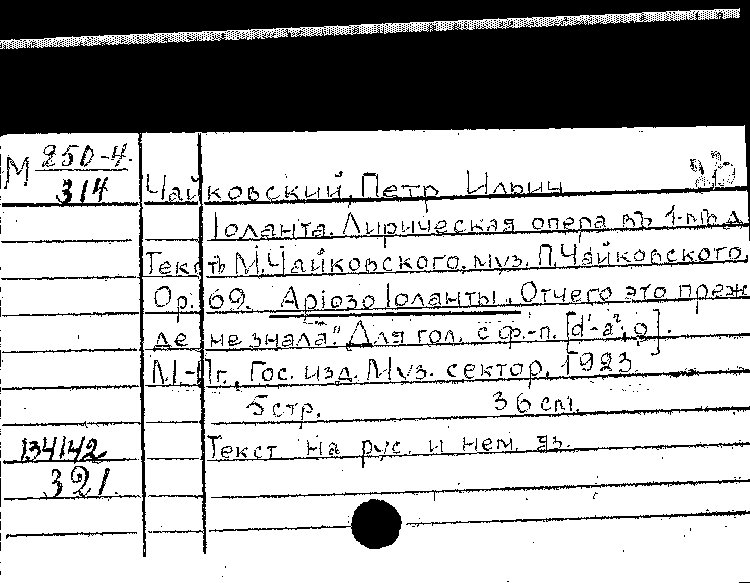 М 250-4.
314
Чайковский, Петр Ильич
Іоланта. Лирическая опера въ 1-мъ д.
Текстъ М. Чайковского, муз. П. Чайковского,
Ор. 69. Аріозо Іоланты „Отчего это преж
де не знала". Для гол. с ф.-п. [d'-a²; о].
М.-Пг., Гос. изд. Муз. сектор, 1923.
5 стр. 36 см.
134142 Текст на рус. и нем. яз.
321.